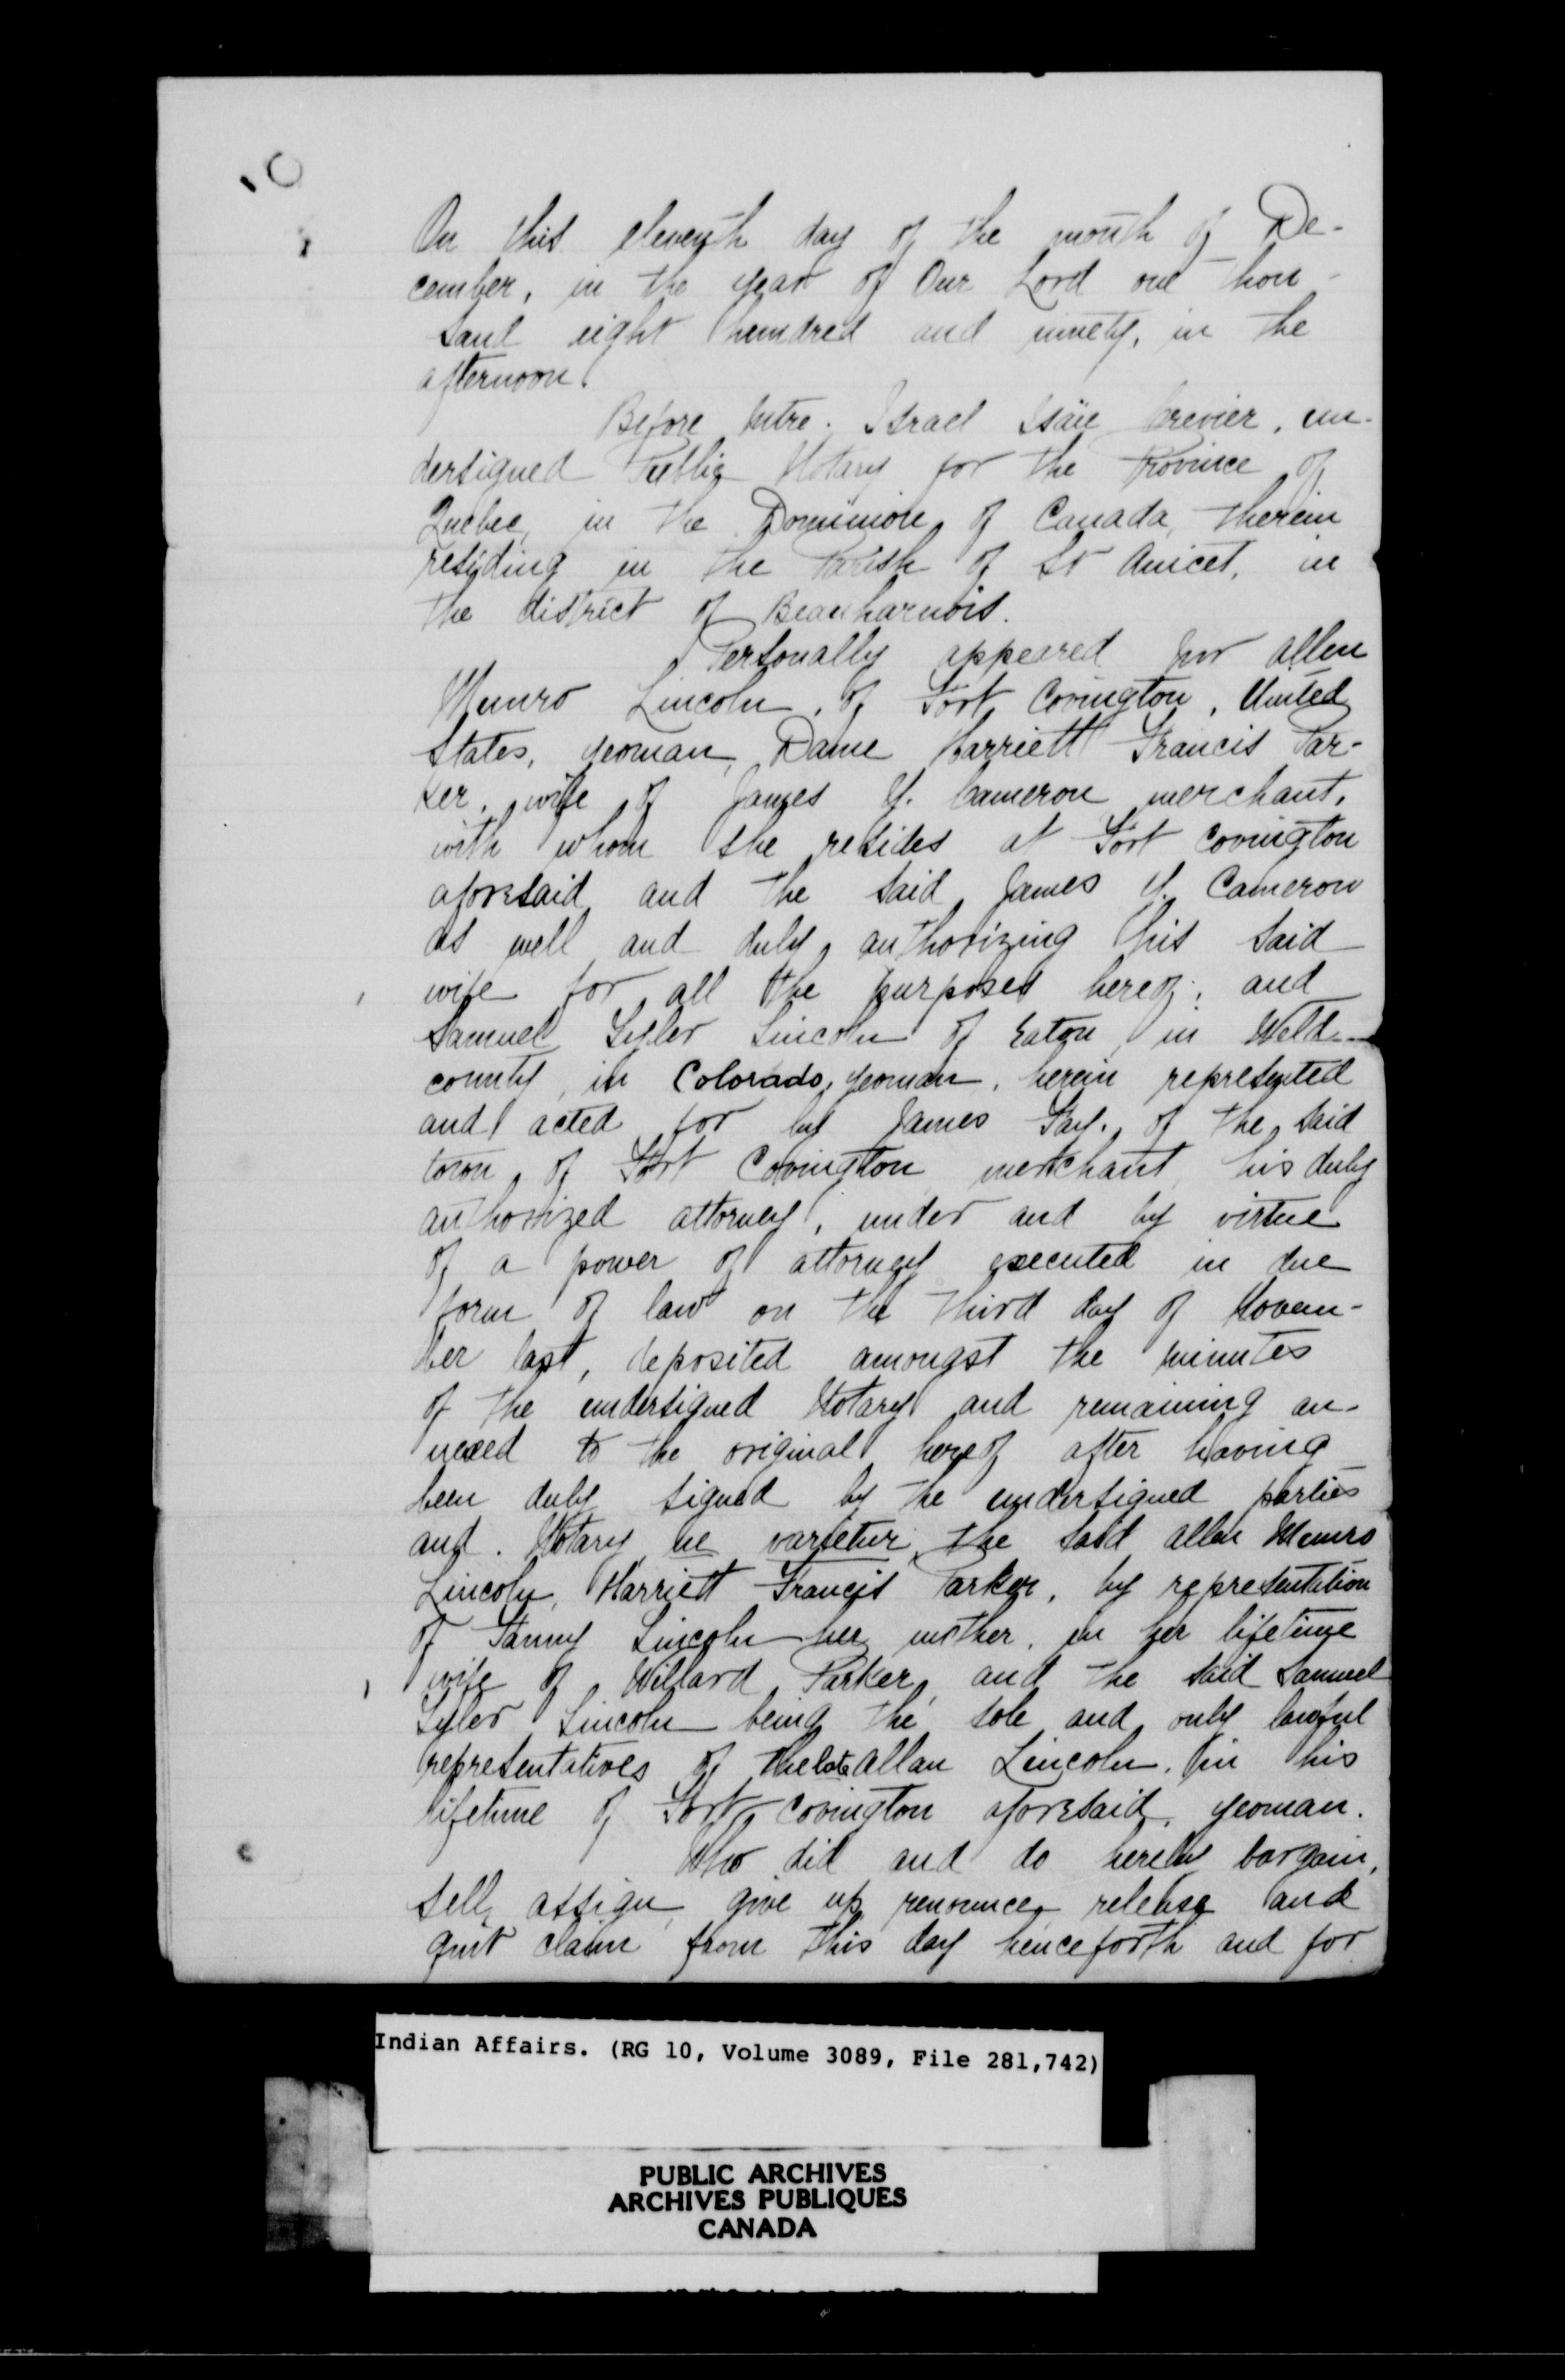 On this eleventh day of the month of De-
cember, in the year of Our Lord one thou-
sand eight hundred and ninety, in the
afternoon.
Before Mtre. Israel Isaïe Crevier, un-
dersigned Public Notary for the Province of
Quebec, in the Dominion of Canada, therein
residing in the Parish of St Anicet, in
the district of Beauharnois.
Personally appeared Allen
Munro Lincoln, of Fort Covington, United
States, yeoman, Dame Harriett Francis Par-
ker, wife of James Y. Cameron merchant,
with whom she resides at Fort Covington
aforesaid and the said James Y. Cameron
as well and duly authorizing his said
wife for all the purposes hereof; and
Samuel Tyler Lincoln of Eaton, in Weld
county, in Colorado, yeoman, herein represented
and acted for by James Fay, of the said
town of Fort Covington merchant, his duly
authorized attorney, under and by virtue
of a power of attorney executed in due
form of law on the third day of Novem-
ber last, deposited amongst the minutes
of the undersigned Notary and remaining an-
nexed to the original hereof after having
been duly signed by the undersigned parties
and Notary ne varietur, the said Allen Munro
Lincoln, Harriett Francis Parker, by representation
of Fanny Lincoln her mother, in her lifetime
wife of Willard Parker, and the said Samuel
Tyler Lincoln being the sole and only lawful
representatives of the late Allan Lincoln, in his
lifetime of Fort Covington aforesaid, yeoman.
Who did and do hereby bargain,
sell, assign, give up, renounce, release and
quit claim from this day henceforth and for
Indian Affairs. (RG 10, Volume 3089, File 281,742)
PUBLIC ARCHIVES
ARCHIVES PUBLIQUES
CANADA